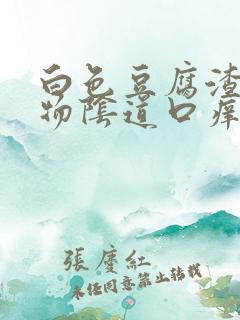 白色豆腐渣
物陰道口痒
張慶紅
未经同意禁止转载